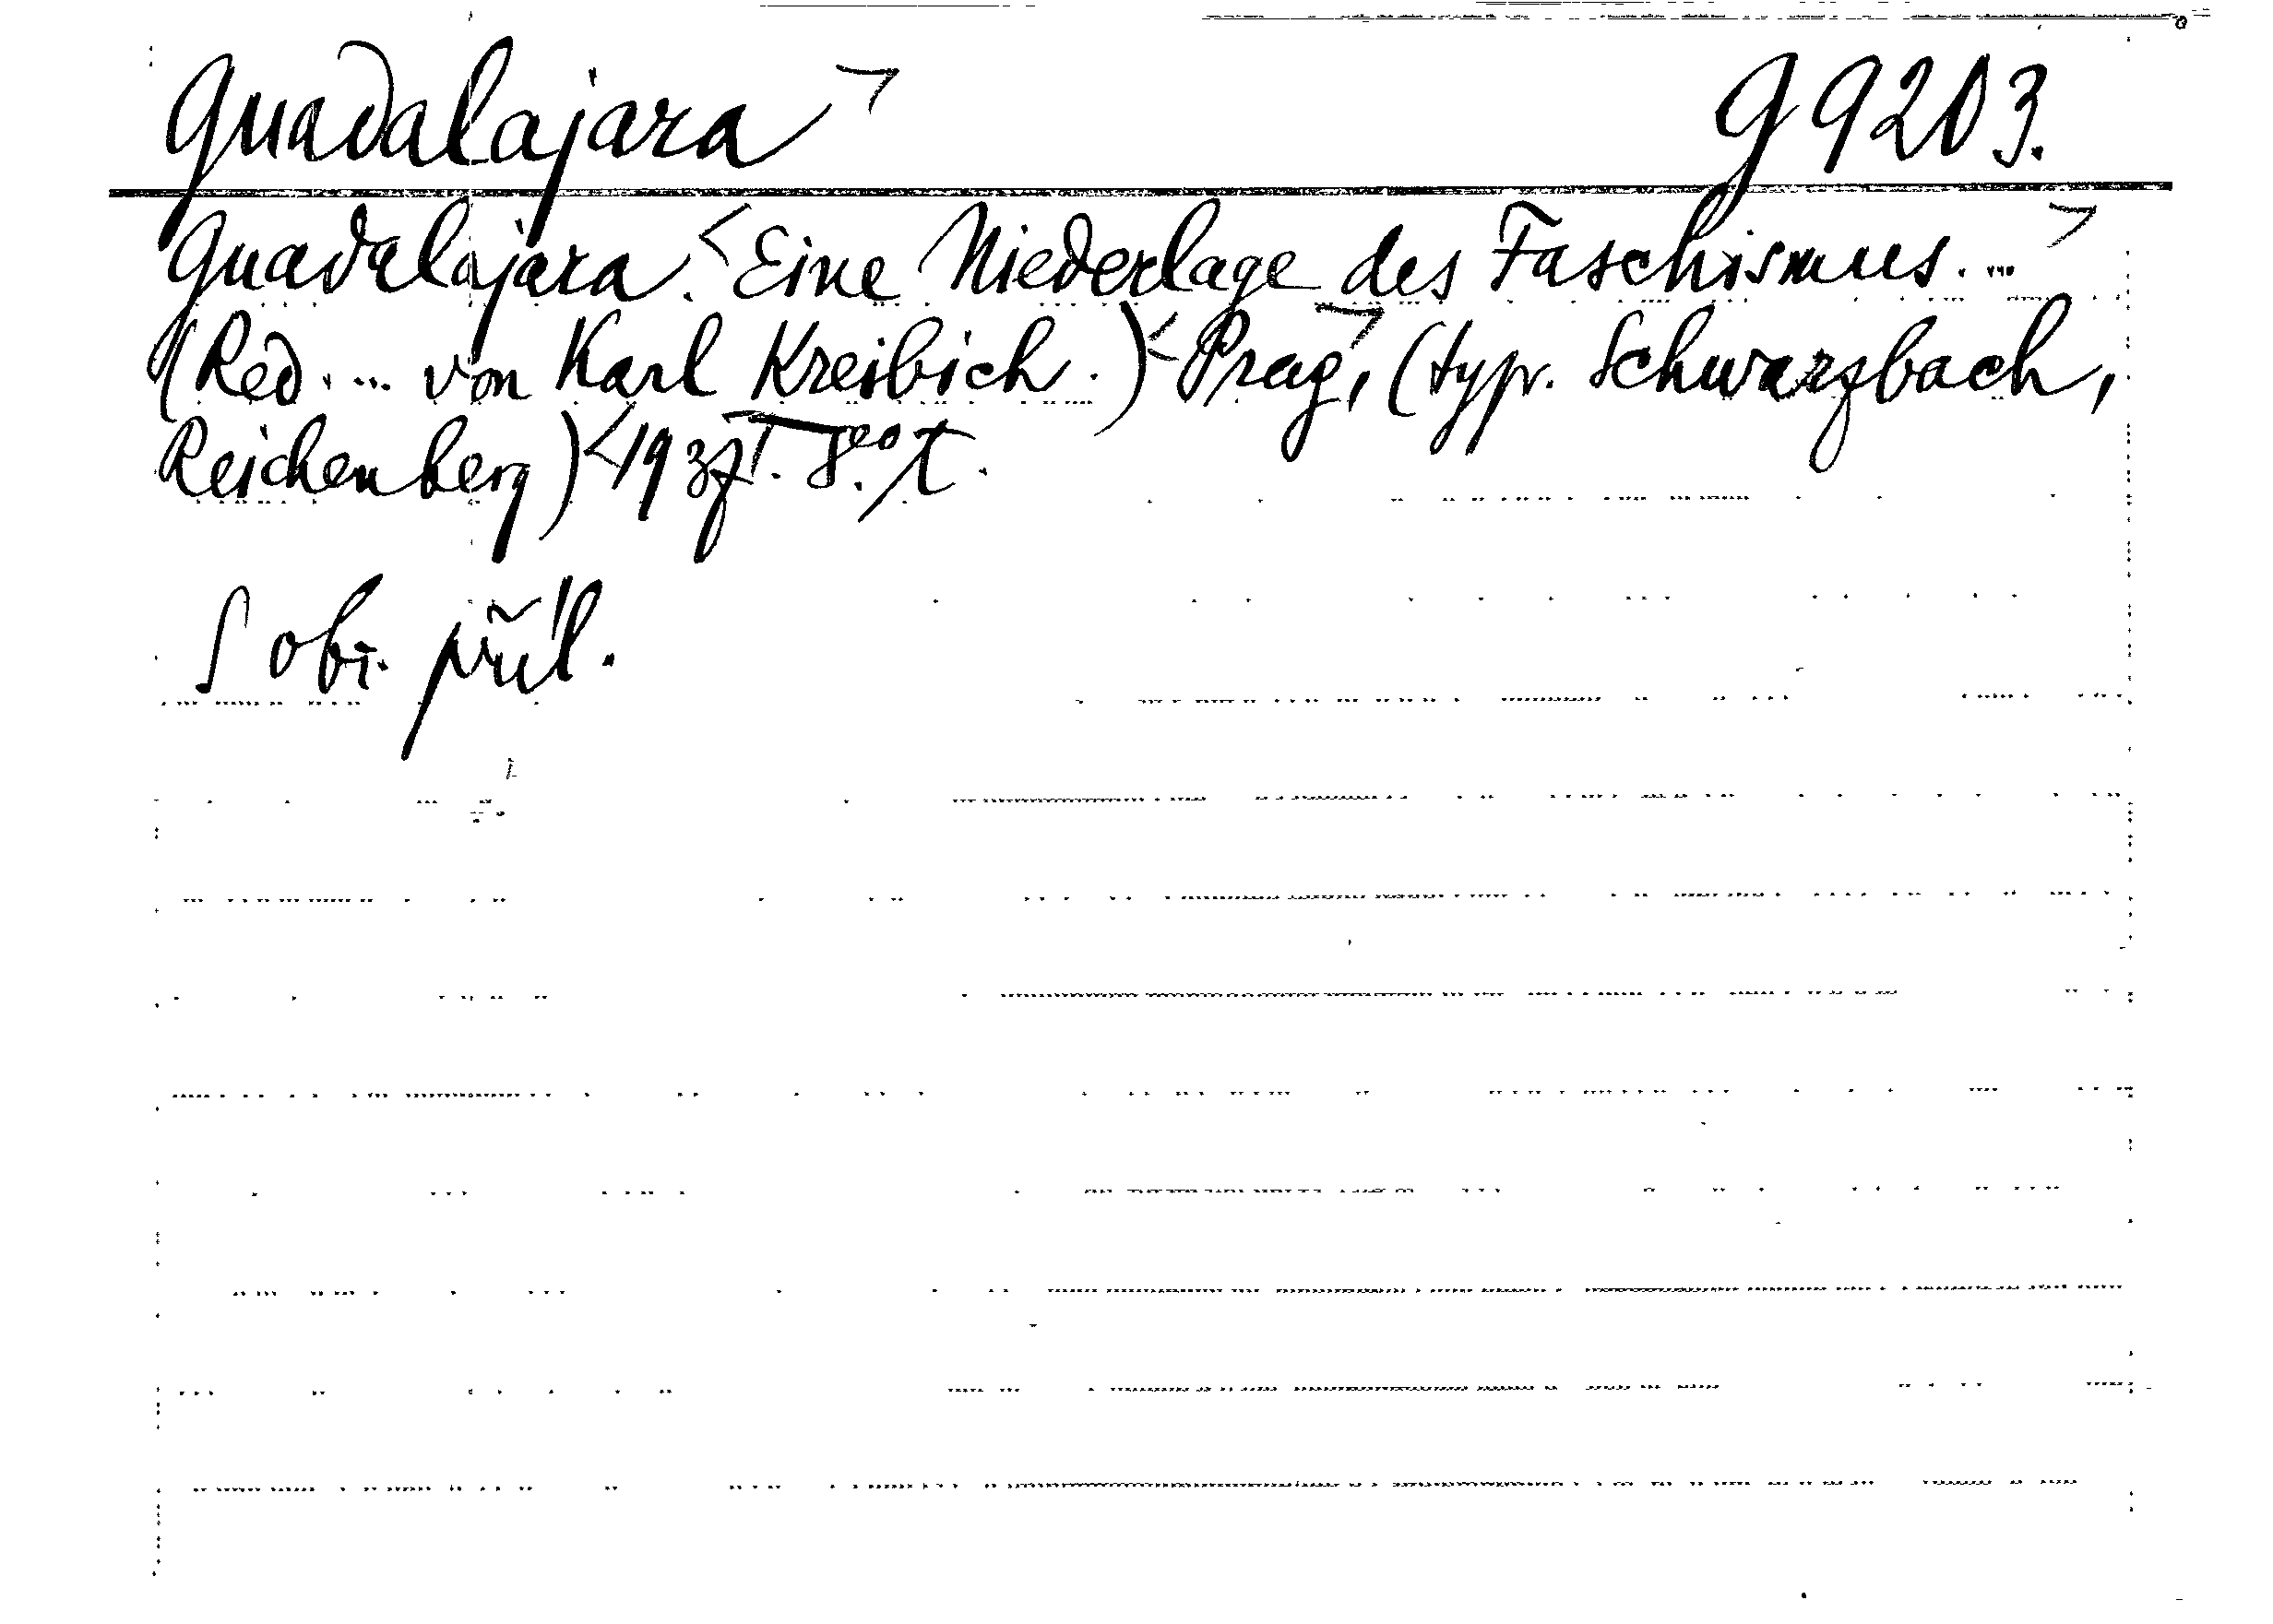 Guadalajara > G 9203.
Guadalajara. < Eine Niederlage des Faschismus. ... >
(Red. ... von Karl Kreibich.) < Prag, > (typ. Schwarzbach,
Reichenberg) < 1937. 8°.
S obr. příl.